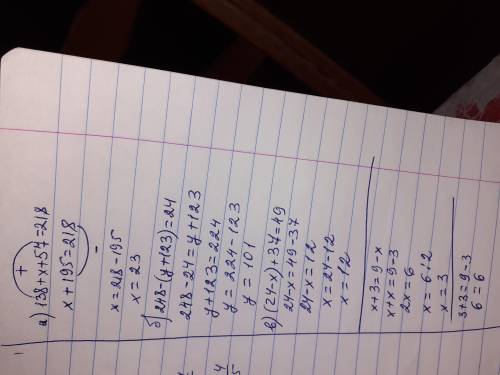 а) 138+x+57=218
x+195=218
x=218-195
x=23
б) 248-(y+123)=24
248-24=y+123
y+123=224
y=224-123
y=101
в) (24-x)+37=49
24-x=49-37
24-x=12
x=24-12
x=12
x+3=9-x
x+x=9-3
2x=6
x=6:2
x=3
3+3=9-3
6=6